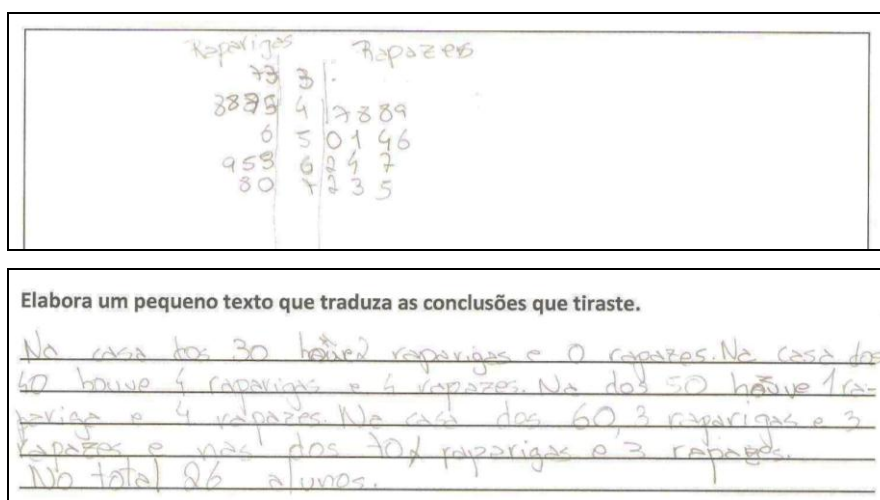 Raparigas Rapazes
73 3
3875 4 7889
6 5 01 46
953 6 24 7
80 7 23 5
Elabora um pequeno texto que traduza as conclusões que tiraste.
Na casa dos 30 houve 2 raparigas e 0 rapazes. Na casa dos
40 houve 4 raparigas e 4 rapazes. Na dos 50 houve 1 ra-
pariga e 4 rapazes. Na casa dos 60, 3 raparigas e 3
rapazes e nas dos 70 raparigas e 3 rapazes.
No total 26 alunos.